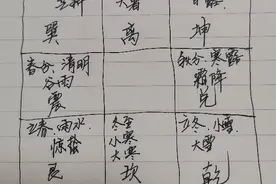 巽 离 坤
春分、清明 秋分、寒露
谷雨 霜降
震 兑
立春、雨水、 冬至 立冬、小雪、
惊蛰 小寒 大雪
大寒
艮 坎 乾